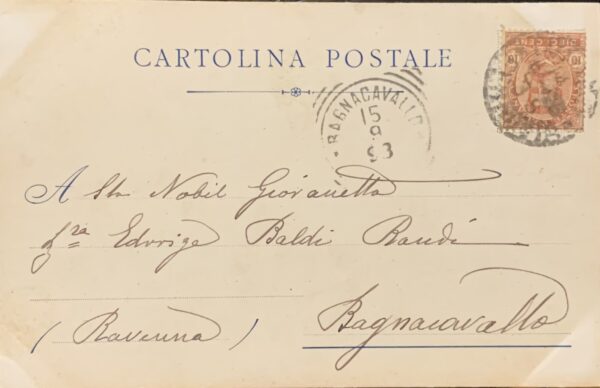 CARTOLINA POSTALE
BAGNACAVALLO
15
9
93
A Sta Nobil Giovanetta
Edvvige Baldi Bandi
(Ravenna)
Bagnacavallo